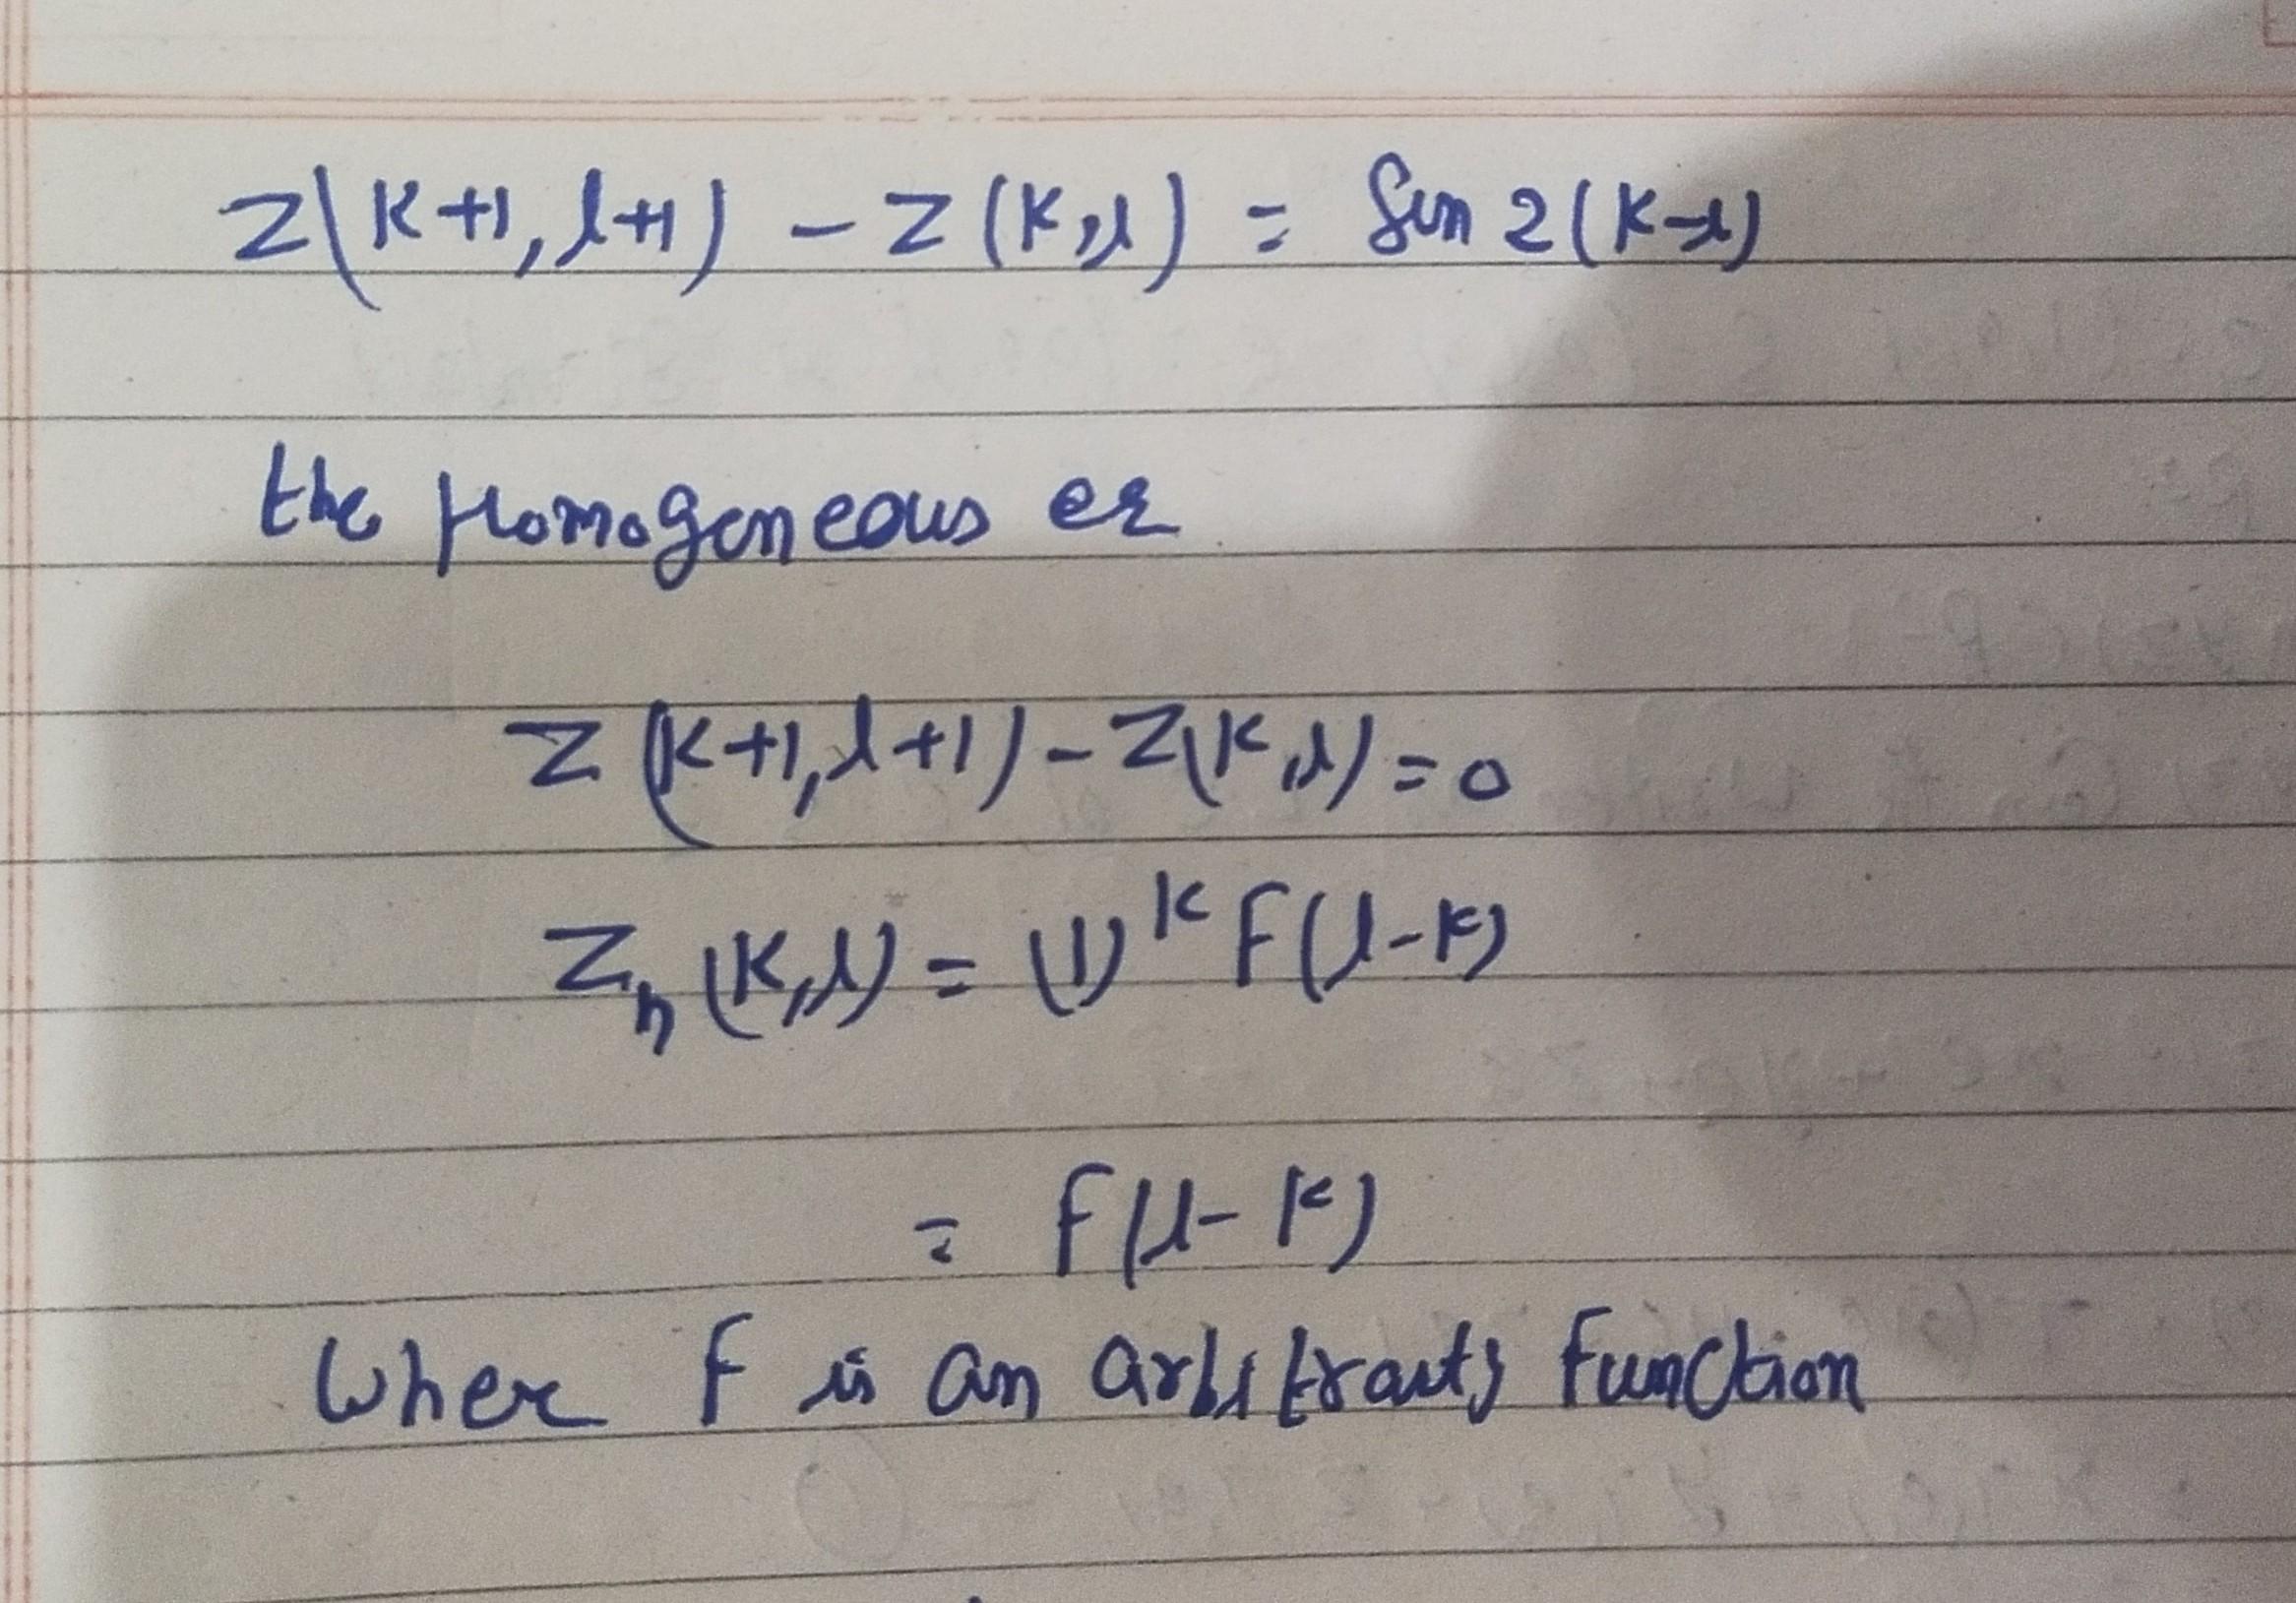 Z(K+1, l+1) - Z(K, l) = Sin 2(K-l)
the Homogeneous eq
Z(K+1, l+1) - Z(K, l) = 0
Zh(K, l) = (1)^K F(l-K)
= F(l-K)
Where F is an arbitrary function